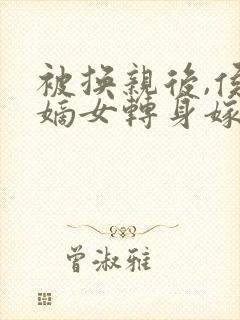 被換親後,侯
嫡女轉身嫁
曾淑雅